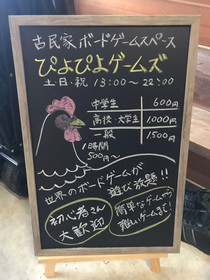 古民家ボードゲームスペース
ぴよぴよゲームズ
土日・祝 13:00〜22:00
中学生 600円
高校・大学生 1,000円
一般 1500円
1時間
500円〜
世界のボードゲームが
遊び放題!!
初心者さん
大歓迎
簡単なゲームから
難しいゲームまで!